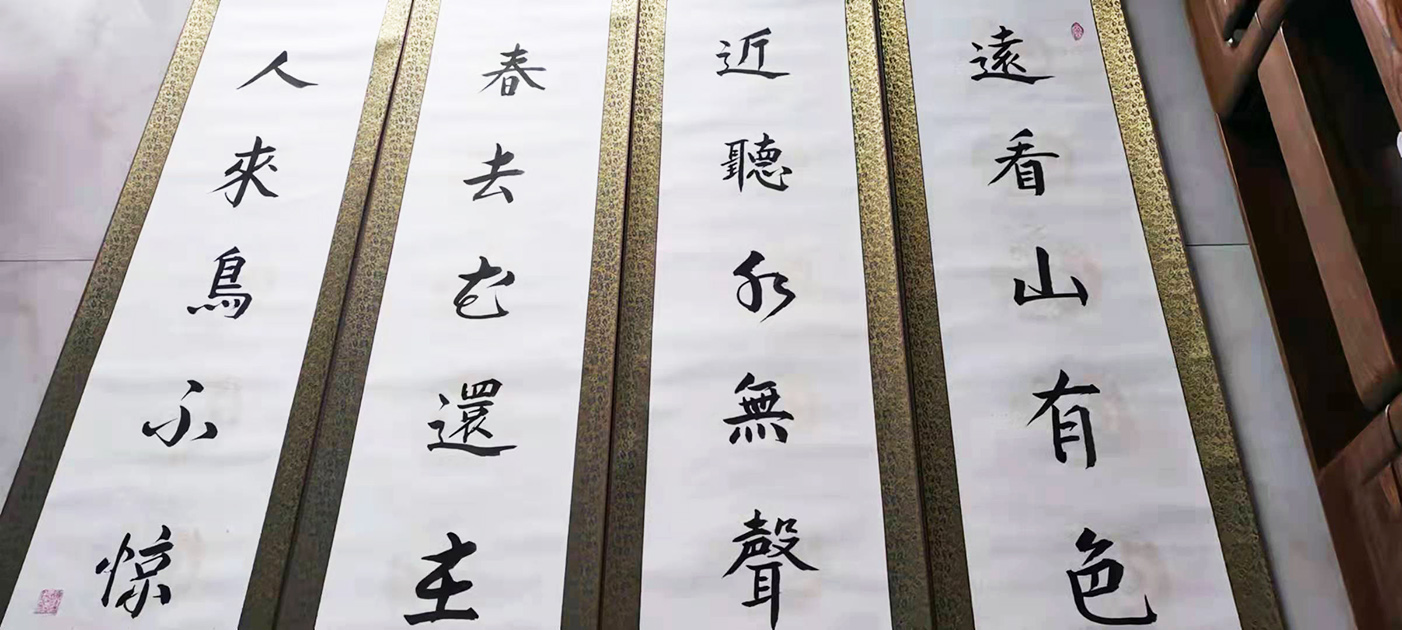 遠看山有色
近聽水無聲
春去花還在
人來鳥不惊